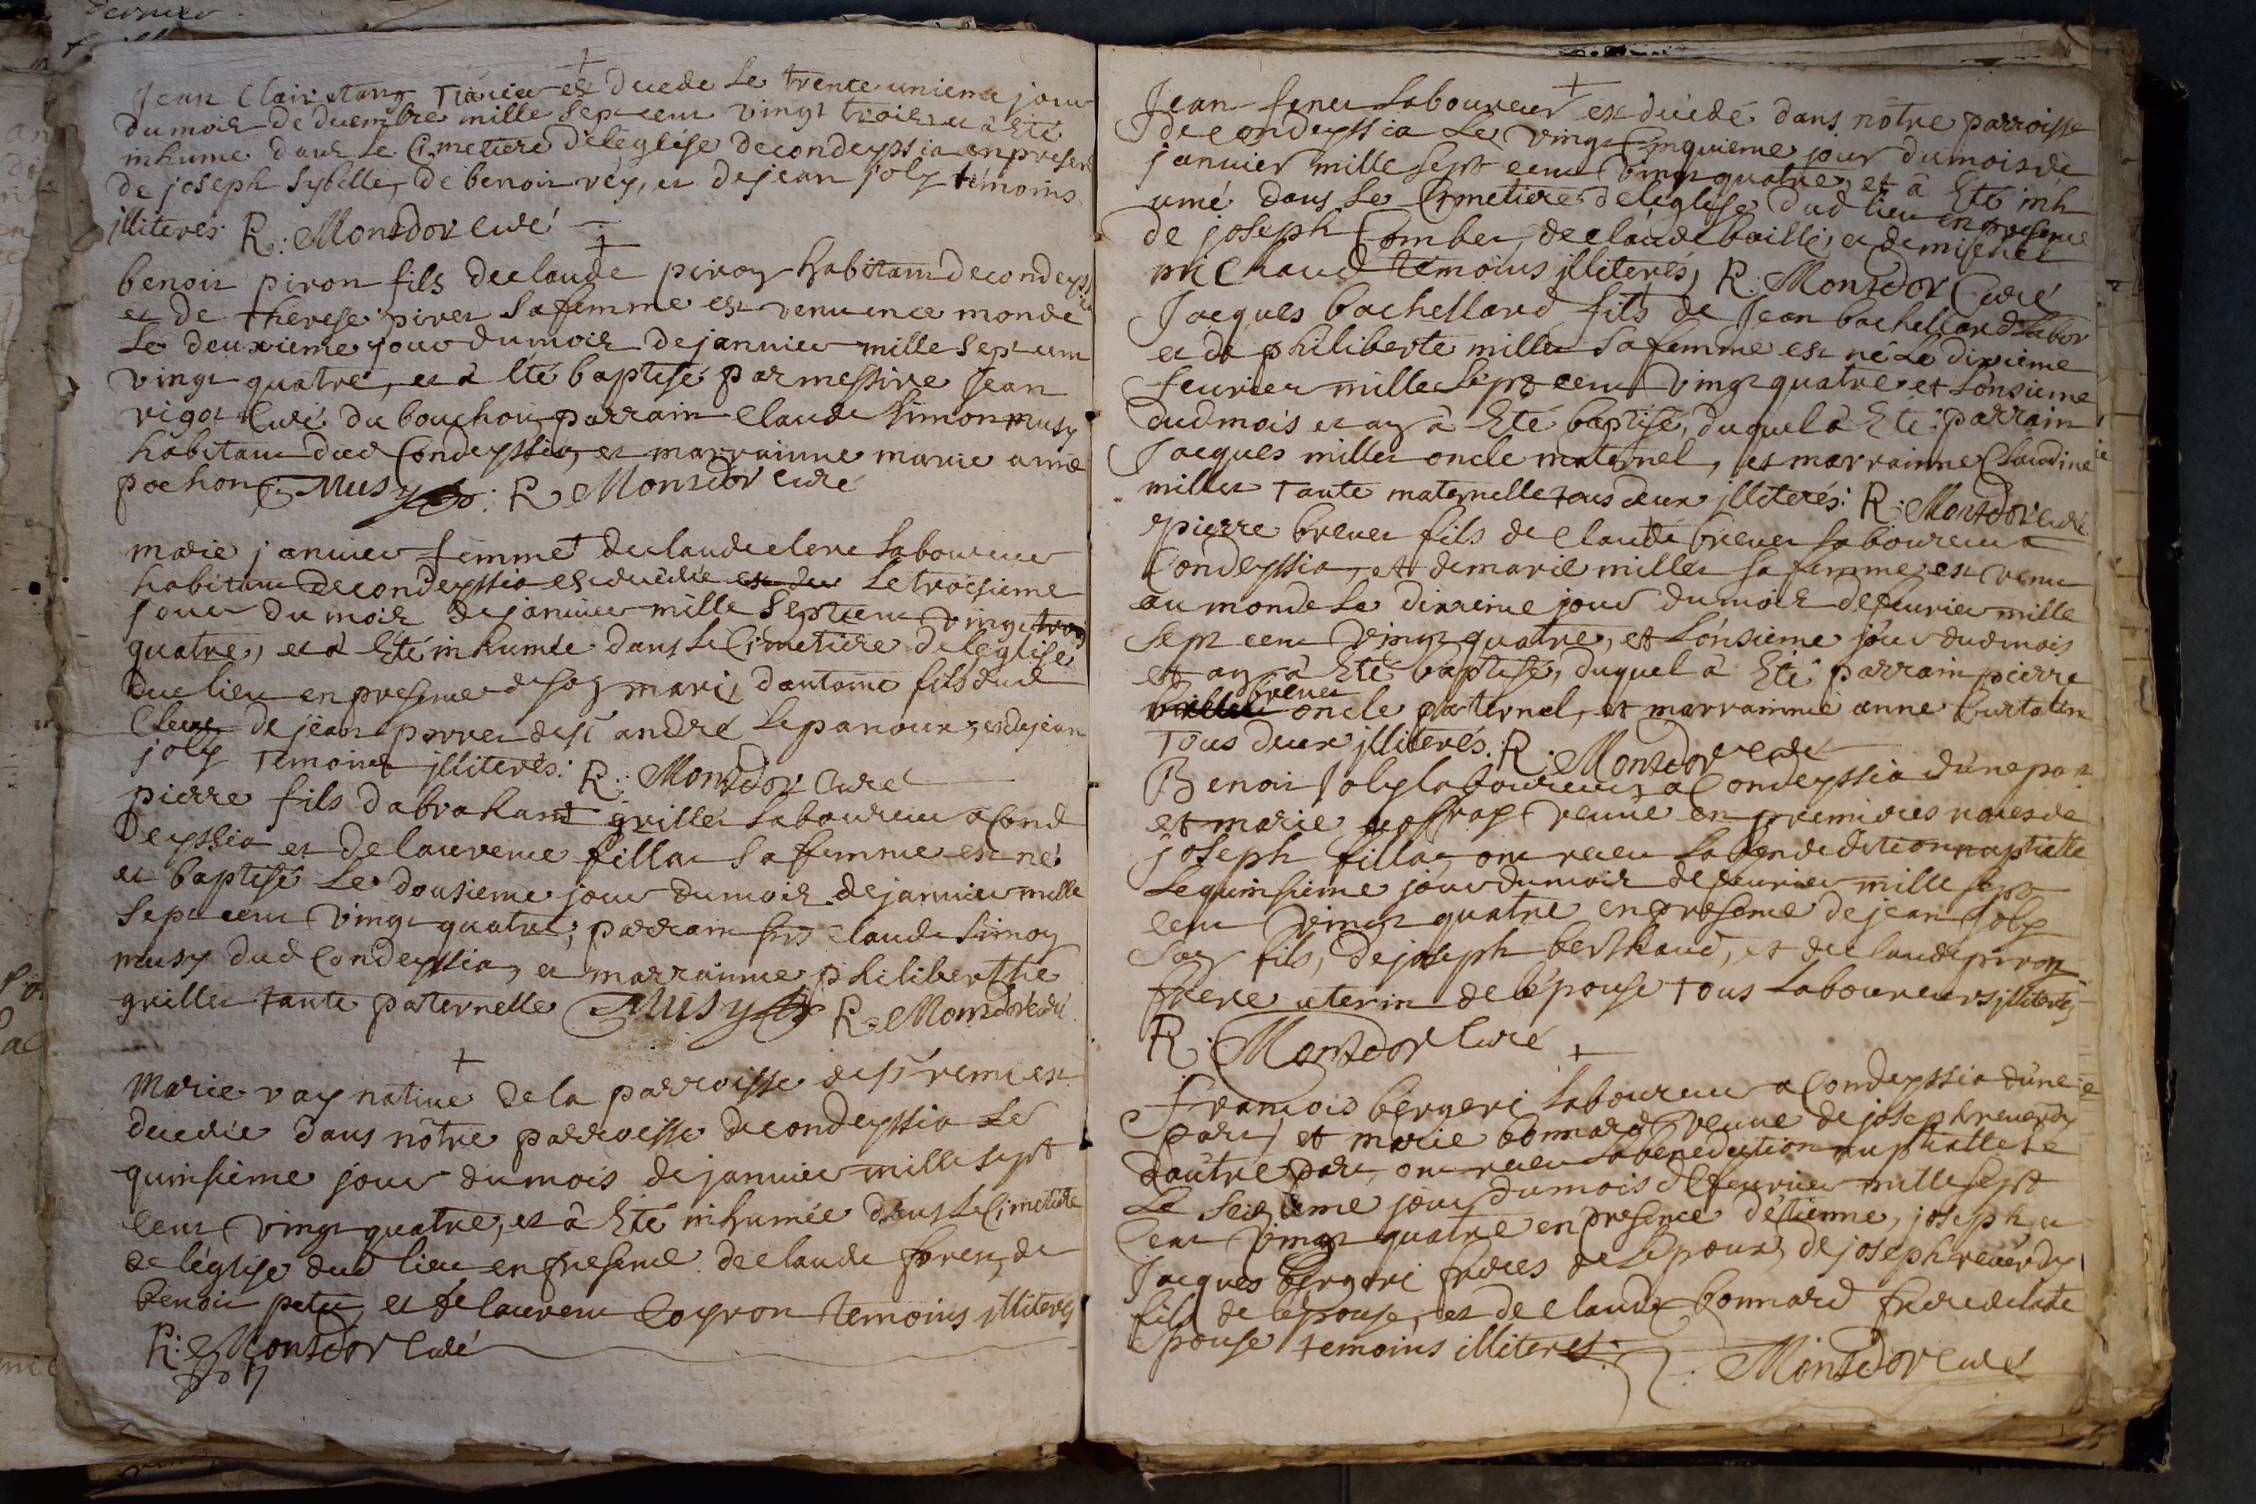 dernier
Jean Clair Tixier est decede Le trente unieme jour
du mois de decembre mille Sept cent vingt trois et a Eté
inhumé dans Le Cimetiere de leglise de condeyssia en presence
de joseph Sybelle, de benoit rey, et de jean joly témoins
jlliterés R: Montdor Curé
benoit piron fils de claude piron habitant de condeyssia
et de therese piret Sa femme est venu en ce monde
Le deuxieme jour du mois de janvier mille Sept cent
vingt quatre, et à Eté baptisé par messire Jean
rigot Curé du bouchou, parrain Claude Simon musy
habitant dud Condeyssia, et marrainne marie aimé
pochon, Musy: R Montdor Curé
marie janvier femme de claude clerc Laboureur
habitant de condeyssia est decedée Le troisieme
jour du mois de janvier mille Sept cent vingt trois
quatre, et à Eté inhumée dans Le Cimetiere de l eglise
dud lieu en presence de son mari, dantoine fils dud
Clerc de jean perret de st andré Lepanoux, et de jean
joly Temoins jlliterés: R: Montdor Curé
pierre fils dabraham grillet Laboureur a Cond
deyssia et de laurence fillat Sa femme est né
et baptisé Le dousieme jour du mois de janvier mille
Sept cent vingt quatre; parrain Claude Simon
musy dud Condeyssia, et marrainne philiberthe
grillet tante paternelle Musy R: Montdor Curé
Marie vay native de la parroisse de st remi est
decedée dans nôtre parroisse de condeyssia Le
quinsieme jour du mois de janvier mille Sept
Cent vingt quatre, et à Eté inhumée dans Le Cimetiere
de léglise dud lieu en presence de claude foret, de
benoit petit, et de laurent Coyron temoins jlliterés
R: Montdor Curé
Jean Laboureur est décédé dans nôtre parroisse
de condeyssia Le vingt Cinquieme jour du mois de
janvier mille Sept cent vingt quatre, et à Eté inh
umé dans Le Cimetiere de léglise dud lieu en presence
de joseph Combet, de claude bailli, et de michel
michaud témoins jlliterés, R: Montdor Curé
Jacques bachellard fils de Jean bachellard Labor
et de philiberte millet Sa femme est né Le dixième
fevrier mille Sept cent vingt quatre, et L'onsieme
dud mois et an à Eté baptisé, duquel à Eté parrain
Jacques millet oncle maternel, et marrainne Claudine
millet Tante maternelle tous deux jlliterés: R: Montdor curé
pierre brevet fils de claude brevet Laboureur a
Condeyssia, et de marie millet Sa femme est venu
au monde Le dixieme jour du mois de fevrier mille
Sept cent vingt quatre, et L'onsieme jour dud mois
et an à Eté baptisé, duquel à Eté parrain pierre
brevet oncle paternel, et marrainne anne Curtatin
Tous deux jlliterés. R: Montdor curé
Benoit Joly laboureur, a Condeyssia d'une part
et marie veuve en premieres noces de
joseph fillat, ont receu La benediction nuptialle
Le quinsieme jour du mois de fevrier mille Sept
cent vingt quatre en presence de jean Joly
Son fils, de joseph berthaud, et de claude piron
frere uterin de l'épouse tous Laboureurs jlliterés
R: Montdor Curé
francois bergeri Laboureur a Condeyssia d'une
part, et marie bonnard veuve de joseph reverdy
d'autre part, ont receu La benediction nuptialle
Le Seizieme jour du mois de fevrier mille Sept
Cent vingt quatre en presence d'éstienne, joseph, et
Jacques bergeri freres de L'epoux, de joseph reverdy
fils de l'épouse, et de claude bonnard frere de lade
Epouse temoins illiterés: Montdor curé